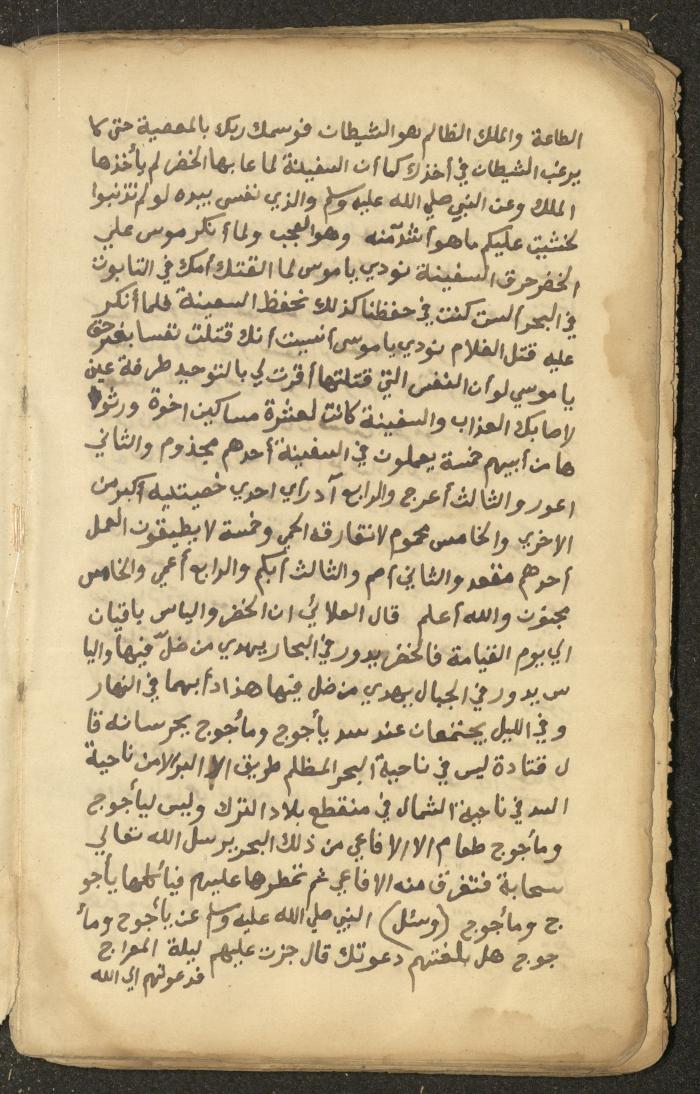 الطاعة والملك الظالم هو الشيطان فوسمك ربك بالمعصية حتى لا
يرغب الشيطان في أخذك كما أن السفينة لما عابها الخضر لم يأخذها
الملك وعن النبي صلي الله عليه وسلم والذي نفسي بيده لو لم تذنبوا
لخشيت عليكم ما هو أشد منه وهو العجب ولما أنكر موسى علي
الخضر خرق السفينة نودي يا موسى لما القتك أمك في التابوت
في البحر ألست كنت في حفظنا كذلك نحفظ السفينة فلما أنكر
عليه قتل الغلام نودي يا موسى أنسيت أنك قتلت نفسا بغير حق
يا موسي لو أن النفس التي قتلتها أقرت لي بالتوحيد طرفة عين
لاصابك العذاب والسفينة كانت لعشرة مساكين اخوة ورثو
ها من أبيهم خمسة يعملون في السفينة أحدهم مجذوم والثاني
اعور والثالث أعرج والرابع آدر أي احدي خصيتيه أكبر من
الاخري والخامس محموم لا تفارقه الحمي وخمسة لا يطيقون العمل
أحدهم مقعد والثاني أصم والثالث أبكم والرابع أعمي والخامس
مجنون والله أعلم قال العلائي ان الخضر والياس باقيان
الي يوم القيامة فالخضر يدور في البحار يهدي من ضل فيها واليا
س يدور في الجبال يهدي من ضل فيها هذا دأبهما في النهار
وفي الليل يجتمعان عند سد يأجوج ومأجوج يحرسانه قا
ل قتادة ليس في ناحية البحر المظلم طريق الي البر الا من ناحية
السد في ناحية الشمال في منقطع بلاد الترك وليس ليأجوج
ومأجوج طعام الا الافاعي من ذلك البحر يرسل الله تعالي
سحابة فتغرف منه الافاعي ثم تمطرها عليهم فيأكلها يأجو
ج ومأجوج (وسئل) النبي صلي الله عليه وسلم عن يأجوج ومأ
جوج هل بلغتهم دعوتك قال جزت عليهم ليلة المعراج
فدعوتهم الي الله